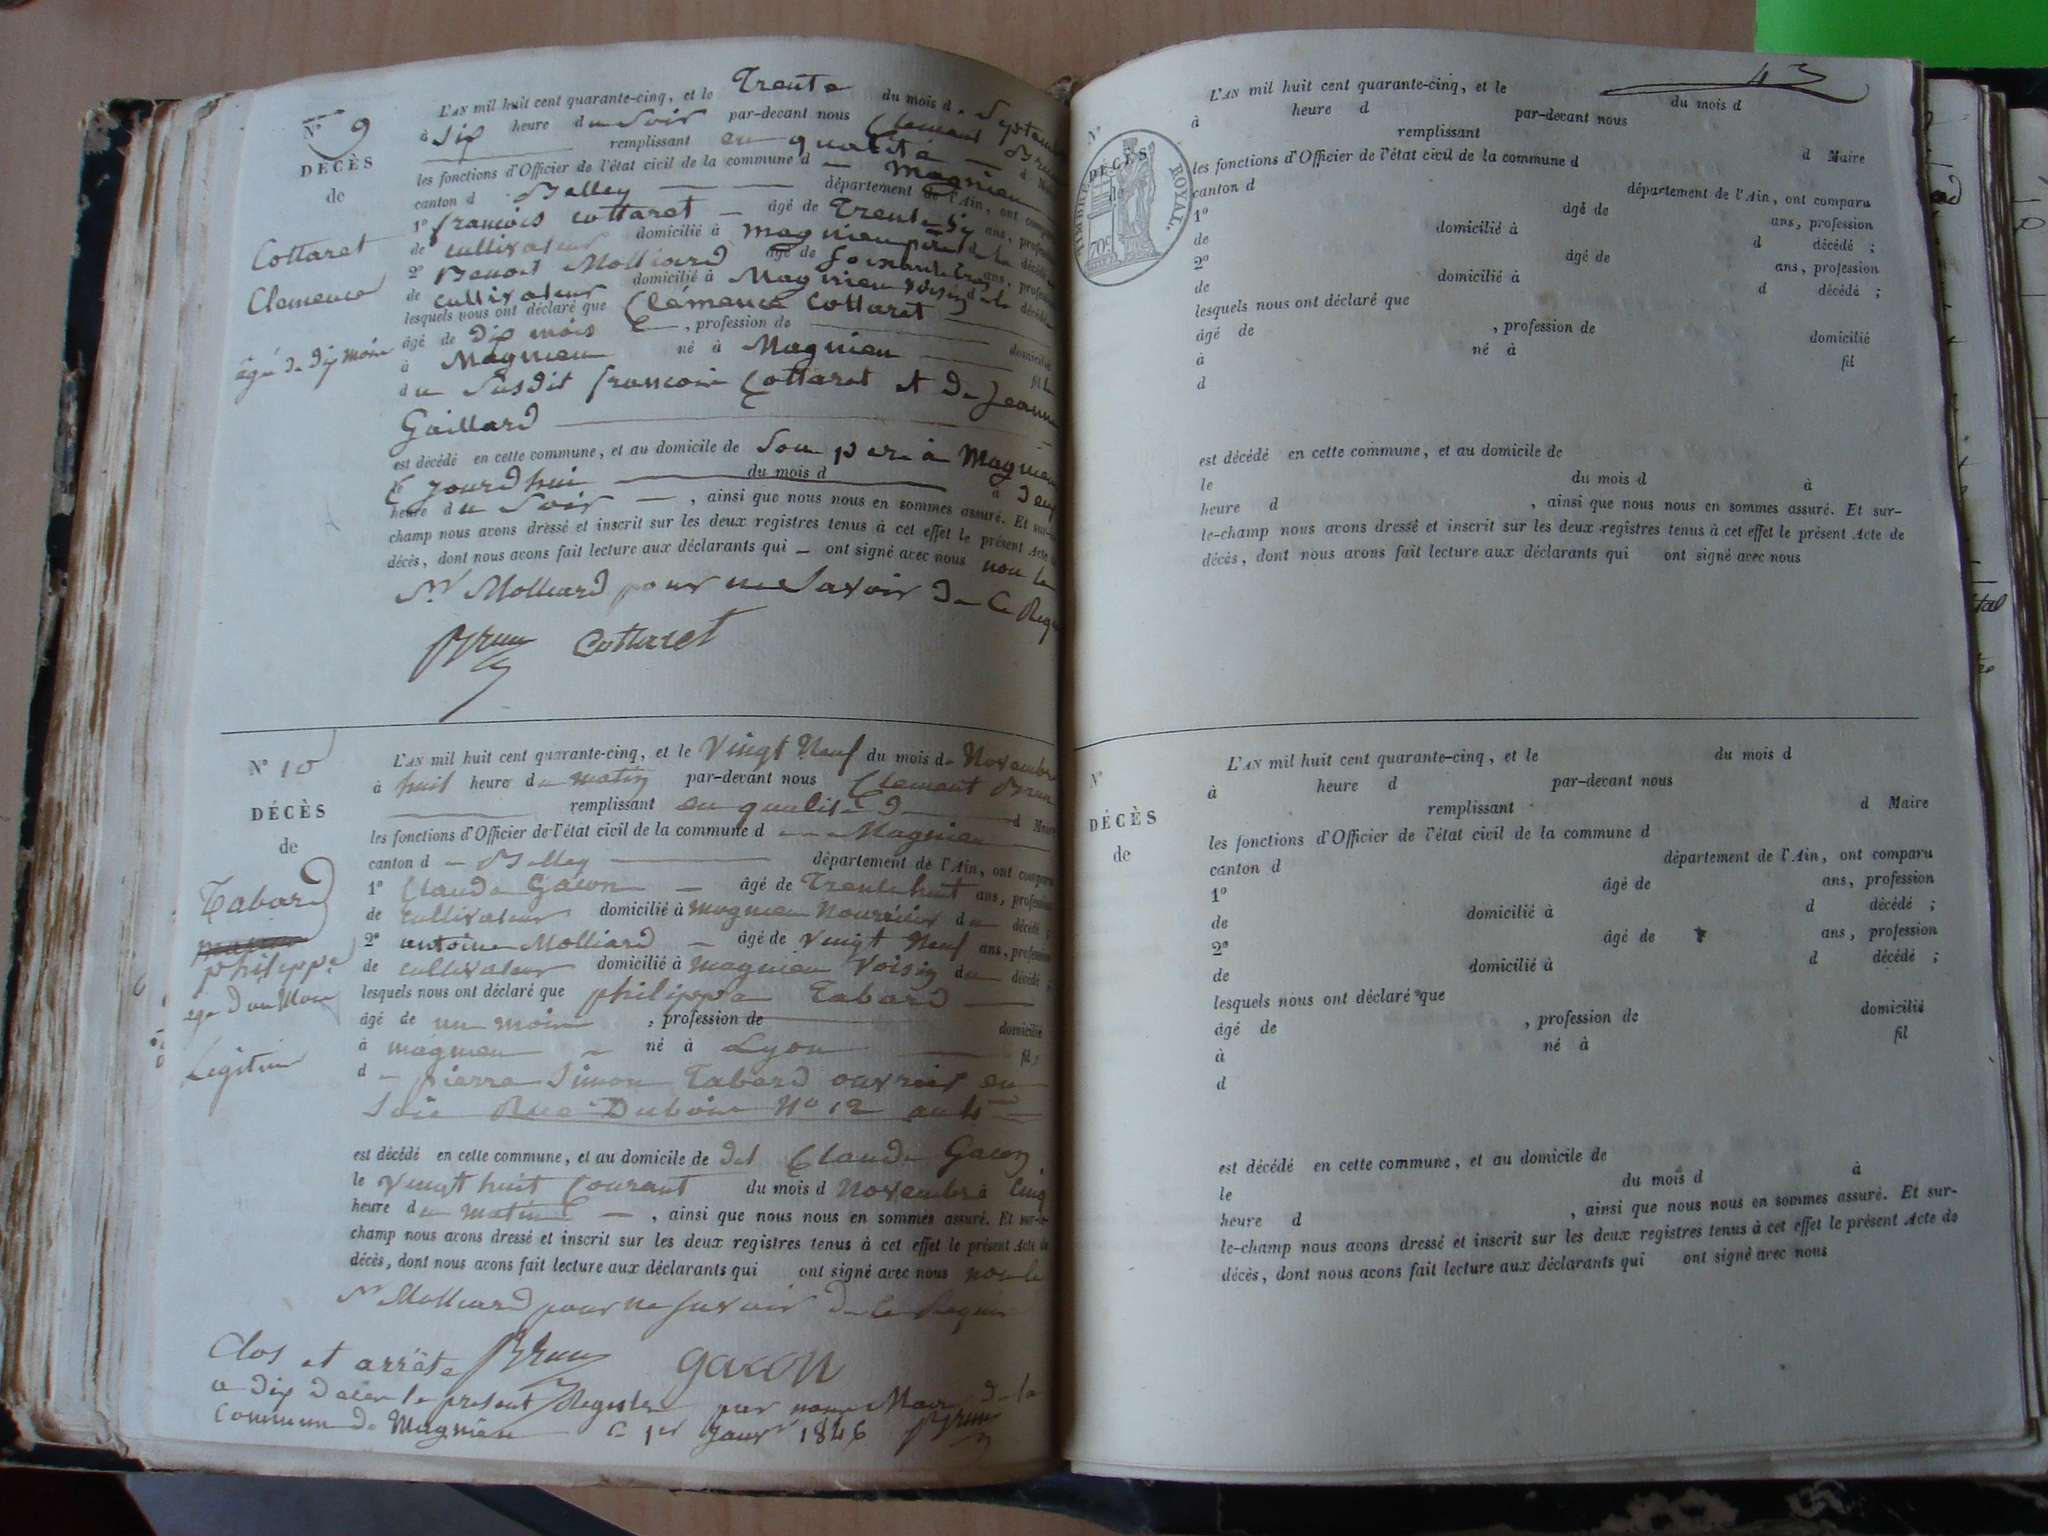 N° 9
DÉCÈS
de
Cottaret
Clemence
âgé de dix mois
L'AN mil huit cent quarante-cinq, et le Trente du mois de Septembre
à Six heure du Soir par-devant nous Clement Brun
remplissant en qualité d Maire
les fonctions d'Officier de l'état civil de la commune d Magnieu
canton d Belley département de l'Ain, ont comparu
1° francois Cottaret âgé de Trente Six ans, profession
de cultivateur domicilié à Magnieu père de la décédé
2° Benoit Molliard âgé de Soixante trois ans, profession
de cultivateur domicilié à Magnieu voisin de la décédé
lesquels nous ont déclaré que Clemence Cottaret
âgé de dix mois , profession de domicilié
à Magnieu né à Magnieu fille
du Susdit francois Cottaret et de Jeanne
Gaillard
est décédé en cette commune, et au domicile de Son pere à Magnieu
le jourdhui du mois d à deux
heure du Soir , ainsi que nous nous en sommes assuré. Et sur-le-
champ nous avons dressé et inscrit sur les deux registres tenus à cet effet le présent Acte de
décès, dont nous avons fait lecture aux déclarants qui ont signé avec nous non le
Sr Molliard pour ne Savoir de ce Requis
Brun Cottaret
N° 10
DÉCÈS
de
Tabard
philippe
age d'un Mois
Legitime
L'AN mil huit cent quarante-cinq, et le Vingt Neuf du mois de Novembre
à huit heure du matin par-devant nous Clement Brun
remplissant en qualité d Maire
les fonctions d'Officier de l'état civil de la commune d Magnieu
canton d Belley département de l'Ain, ont comparu
1° Claude Gacon âgé de Trente huit ans, profession
de cultivateur domicilié à magnieu Nourricier du décédé ;
2° antoine Molliard âgé de Vingt Neuf ans, profession
de cultivateur domicilié à magnieu Voisin du décédé ;
lesquels nous ont déclaré que philippe Tabard
âgé de un mois , profession de domicilié
à magnieu né à Lyon fils
d pierre Simon Tabard ouvrier en
Soie Rue Dubois No 12 au 4me
est décédé en cette commune, et au domicile de dit Claude Gacon
le Vingt huit Courant du mois d Novembre à Cinq
heure du matin , ainsi que nous nous en sommes assuré. Et sur-le-
champ nous avons dressé et inscrit sur les deux registres tenus à cet effet le présent Acte de
décès, dont nous avons fait lecture aux déclarants qui ont signé avec nous non le
Sr Molliard pour ne Savoir de ce Requis
Brun Gacon
Clos et arrêté
a dix le present Registre par nous Maire de la
Commune de Magnieu le 1er Janvr 1846 Brun
43
TIMBRE ROYAL
70c
N°
DÉCÈS
L'AN mil huit cent quarante-cinq, et le du mois d
à heure d par-devant nous
remplissant d Maire
les fonctions d'Officier de l'état civil de la commune d
canton d département de l'Ain, ont comparu
1° âgé de ans, profession
de domicilié à d décédé ;
2° âgé de ans, profession
de domicilié à d décédé ;
lesquels nous ont déclaré que
âgé de , profession de domicilié
à né à fil
d
est décédé en cette commune, et au domicile de
le du mois d à
heure d , ainsi que nous nous en sommes assuré. Et sur-
le-champ nous avons dressé et inscrit sur les deux registres tenus à cet effet le présent Acte de
décès, dont nous avons fait lecture aux déclarants qui ont signé avec nous
N°
DÉCÈS
de
L'AN mil huit cent quarante-cinq, et le du mois d
à heure d par-devant nous
remplissant d Maire
les fonctions d'Officier de l'état civil de la commune d
canton d département de l'Ain, ont comparu
1° âgé de ans, profession
de domicilié à d décédé ;
2° âgé de ans, profession
de domicilié à d décédé ;
lesquels nous ont déclaré que
âgé de , profession de domicilié
à né à fil
d
est décédé en cette commune, et au domicile de
le du mois d à
heure d , ainsi que nous nous en sommes assuré. Et sur-
le-champ nous avons dressé et inscrit sur les deux registres tenus à cet effet le présent Acte de
décès, dont nous avons fait lecture aux déclarants qui ont signé avec nous